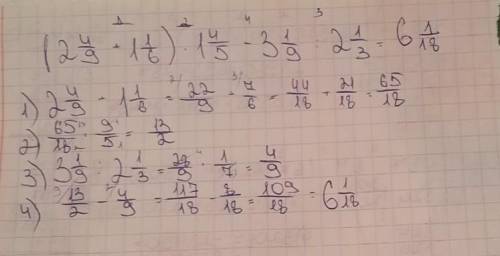 1 2 4 3
(2 4/9 + 1 1/6) · 1 4/5 - 3 1/9 : 2 1/3 = 6 1/18
1) 2 4/9 + 1 1/6 = 22/9 + 7/6 = 44/18 + 21/18 = 65/18
2) 65/18 · 9/5 = 13/2
3) 3 1/9 : 2 1/3 = 28/9 · 1/7 = 4/9
4) 13/2 - 4/9 = 117/18 - 8/18 = 109/18 = 6 1/18